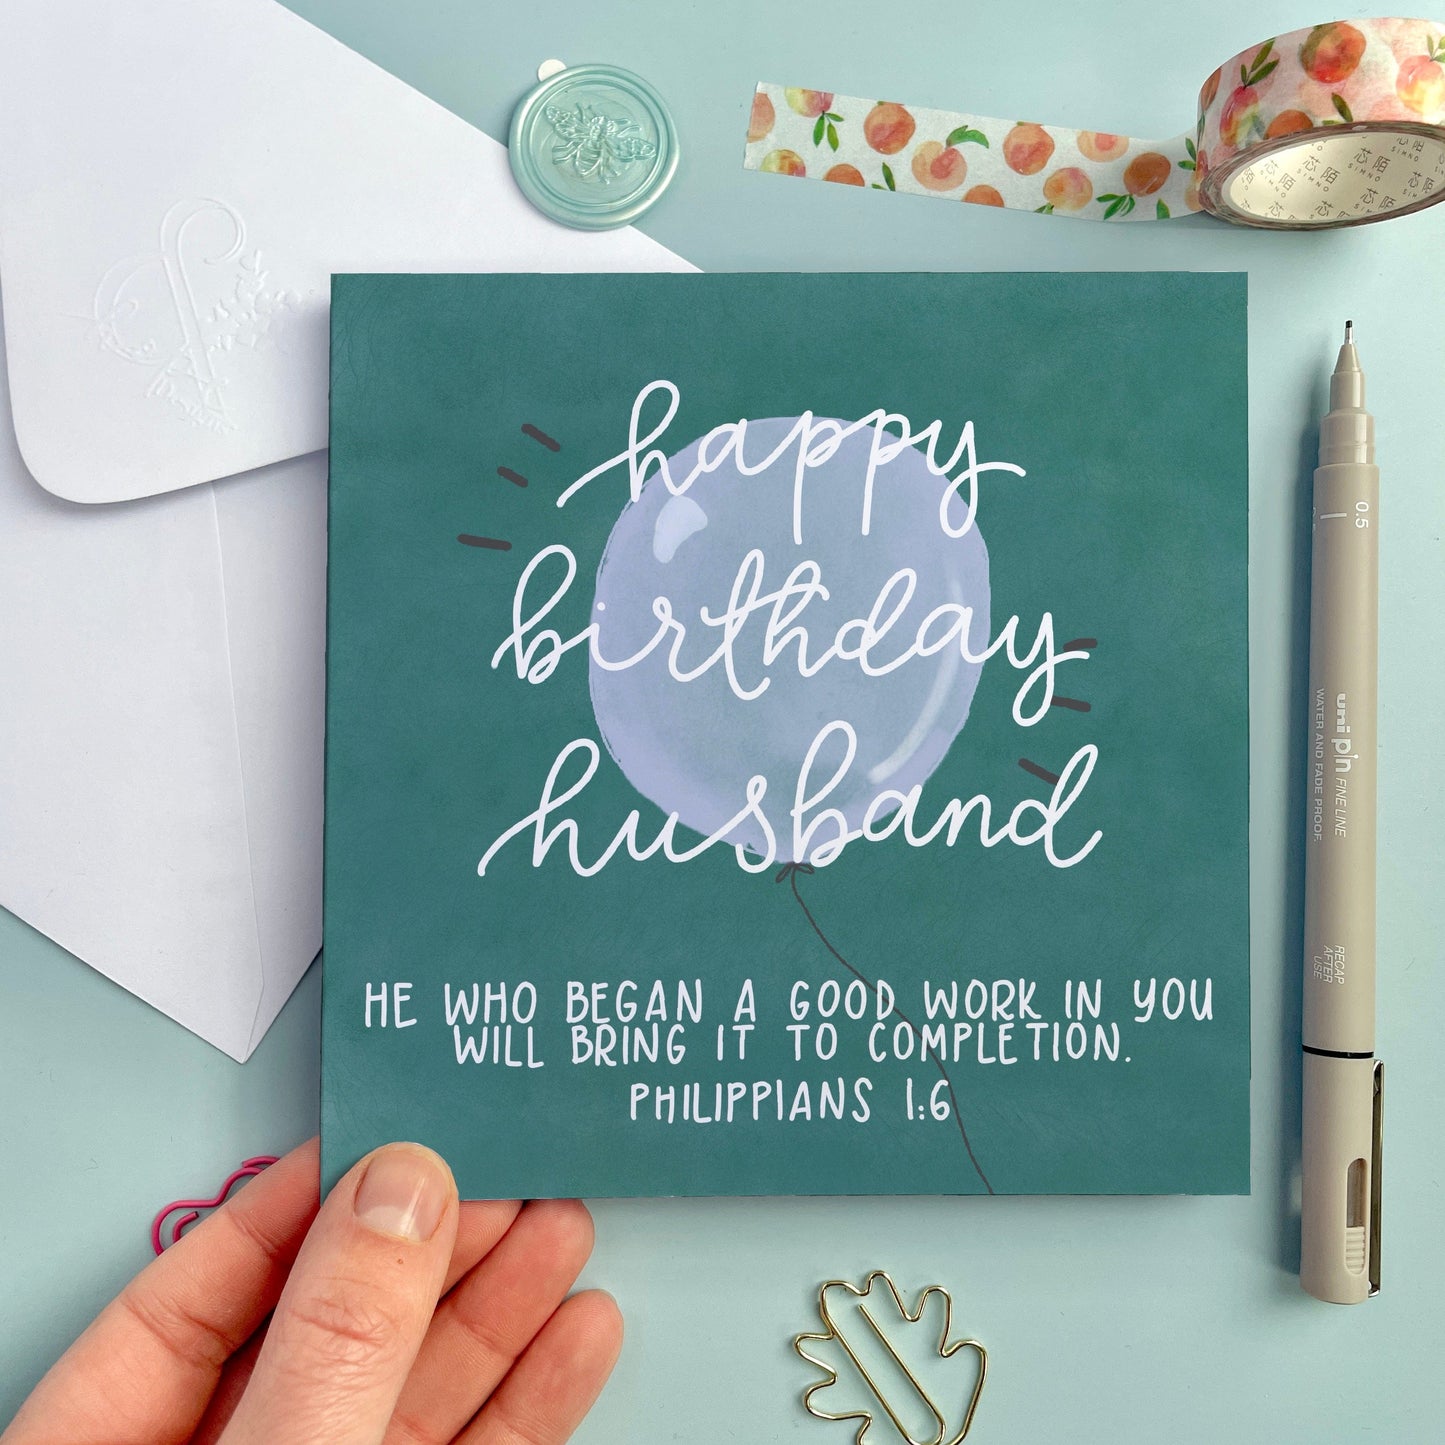 芯陌
SIMNO
happy
birthday
husband
HE WHO BEGAN A GOOD WORK IN YOU
WILL BRING IT TO COMPLETION.
PHILIPPIANS 1:6
0.5
uni pin FINE LINE
WATER AND FADE PROOF.
RECAP
AFTER
USE